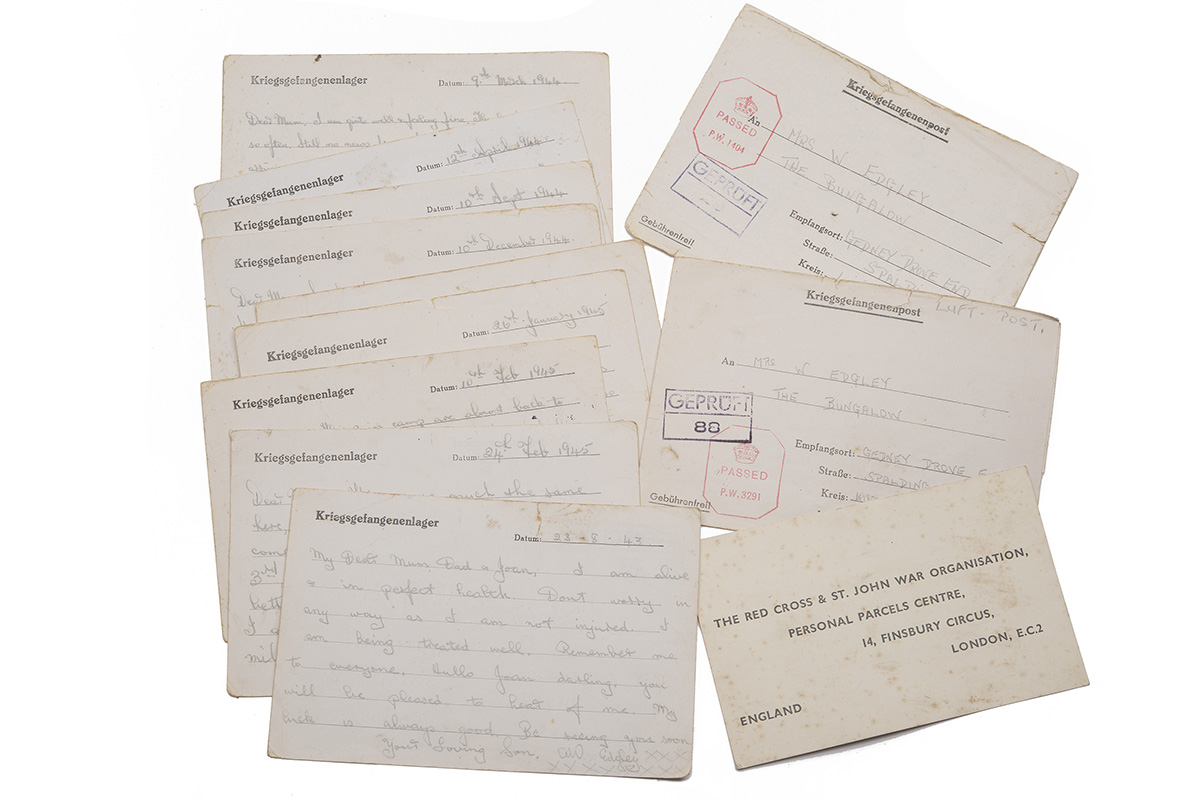 Kriegsgefangenlager Datum: 9th March 1944
Dear Mum, I am quite well & feeling fine.
so often. Still no news
Kriegsgefangenenlager Datum: 12th April 1944
Kriegsgefangenenlager Datum: 10th Sept 1944
Kriegsgefangenenlager Datum: 10th December 1944
Dear Mum
Kriegsgefangenenlager Datum: 26th January 1945
Kriegsgefangenenlager Datum: 10th Feb 1945
camp are almost back to
Kriegsgefangenenlager Datum: 24th Feb 1945
Dear much the same
here,
3rd
Kriegsgefangenenlager Datum: 23-8-43
My Dear Mum Dad & Joan, I am alive
& in perfect health. Dont worry in
any way as I am not injured. I
am being treated well. Remember me
to everyone. Hullo Joan darling, you
will be pleased to hear of me. My
luck is always good. Be seeing you soon
Your Loving Son, AW Edgley XXXX
Kriegsgefangenenpost
PASSED
P.W. 1404
GEPRÜFT
An MRS W EDGLEY
THE BUNGALOW
Empfangsort: GEDNEY DROVE END
Straße: SPALDING
Kreis:
Gebührenfrei
LUFT-POST.
Kriegsgefangenenpost
An MRS W EDGLEY
THE BUNGALOW
GEPRÜFT
88
PASSED
P.W. 3291
Empfangsort: GEDNEY DROVE E
Straße: SPALDING
Kreis:
Gebührenfrei
THE RED CROSS & ST. JOHN WAR ORGANISATION,
PERSONAL PARCELS CENTRE,
14, FINSBURY CIRCUS,
LONDON, E.C.2
ENGLAND